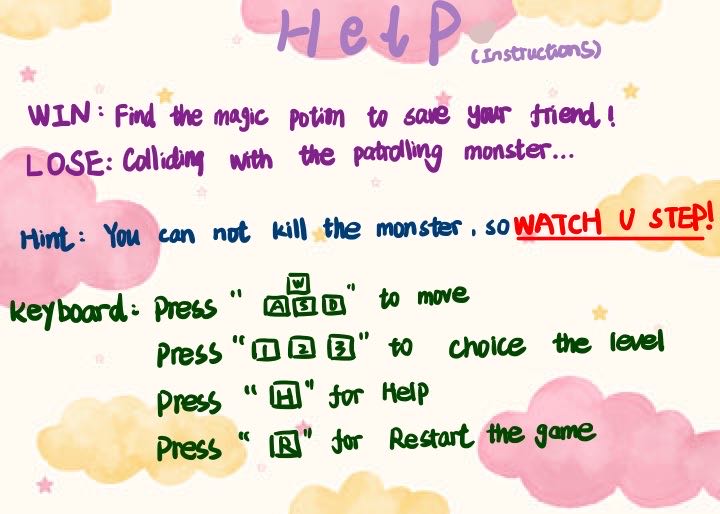 Help
(Instructions)
WIN: Find the magic potion to save your friend!
LOSE: Colliding with the patrolling monster...
Hint: You can not kill the monster, so WATCH U STEP!
W
Keyboard: Press " A S D " to move
Press " 1 2 3 " to choice the level
Press " H " for Help
Press " R " for Restart the game